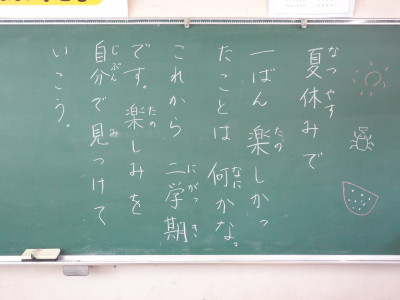 夏休みで
一ばん楽しかっ
たことは何かな。
これから二学期
です。楽しみを
自分で見つけて
いこう。